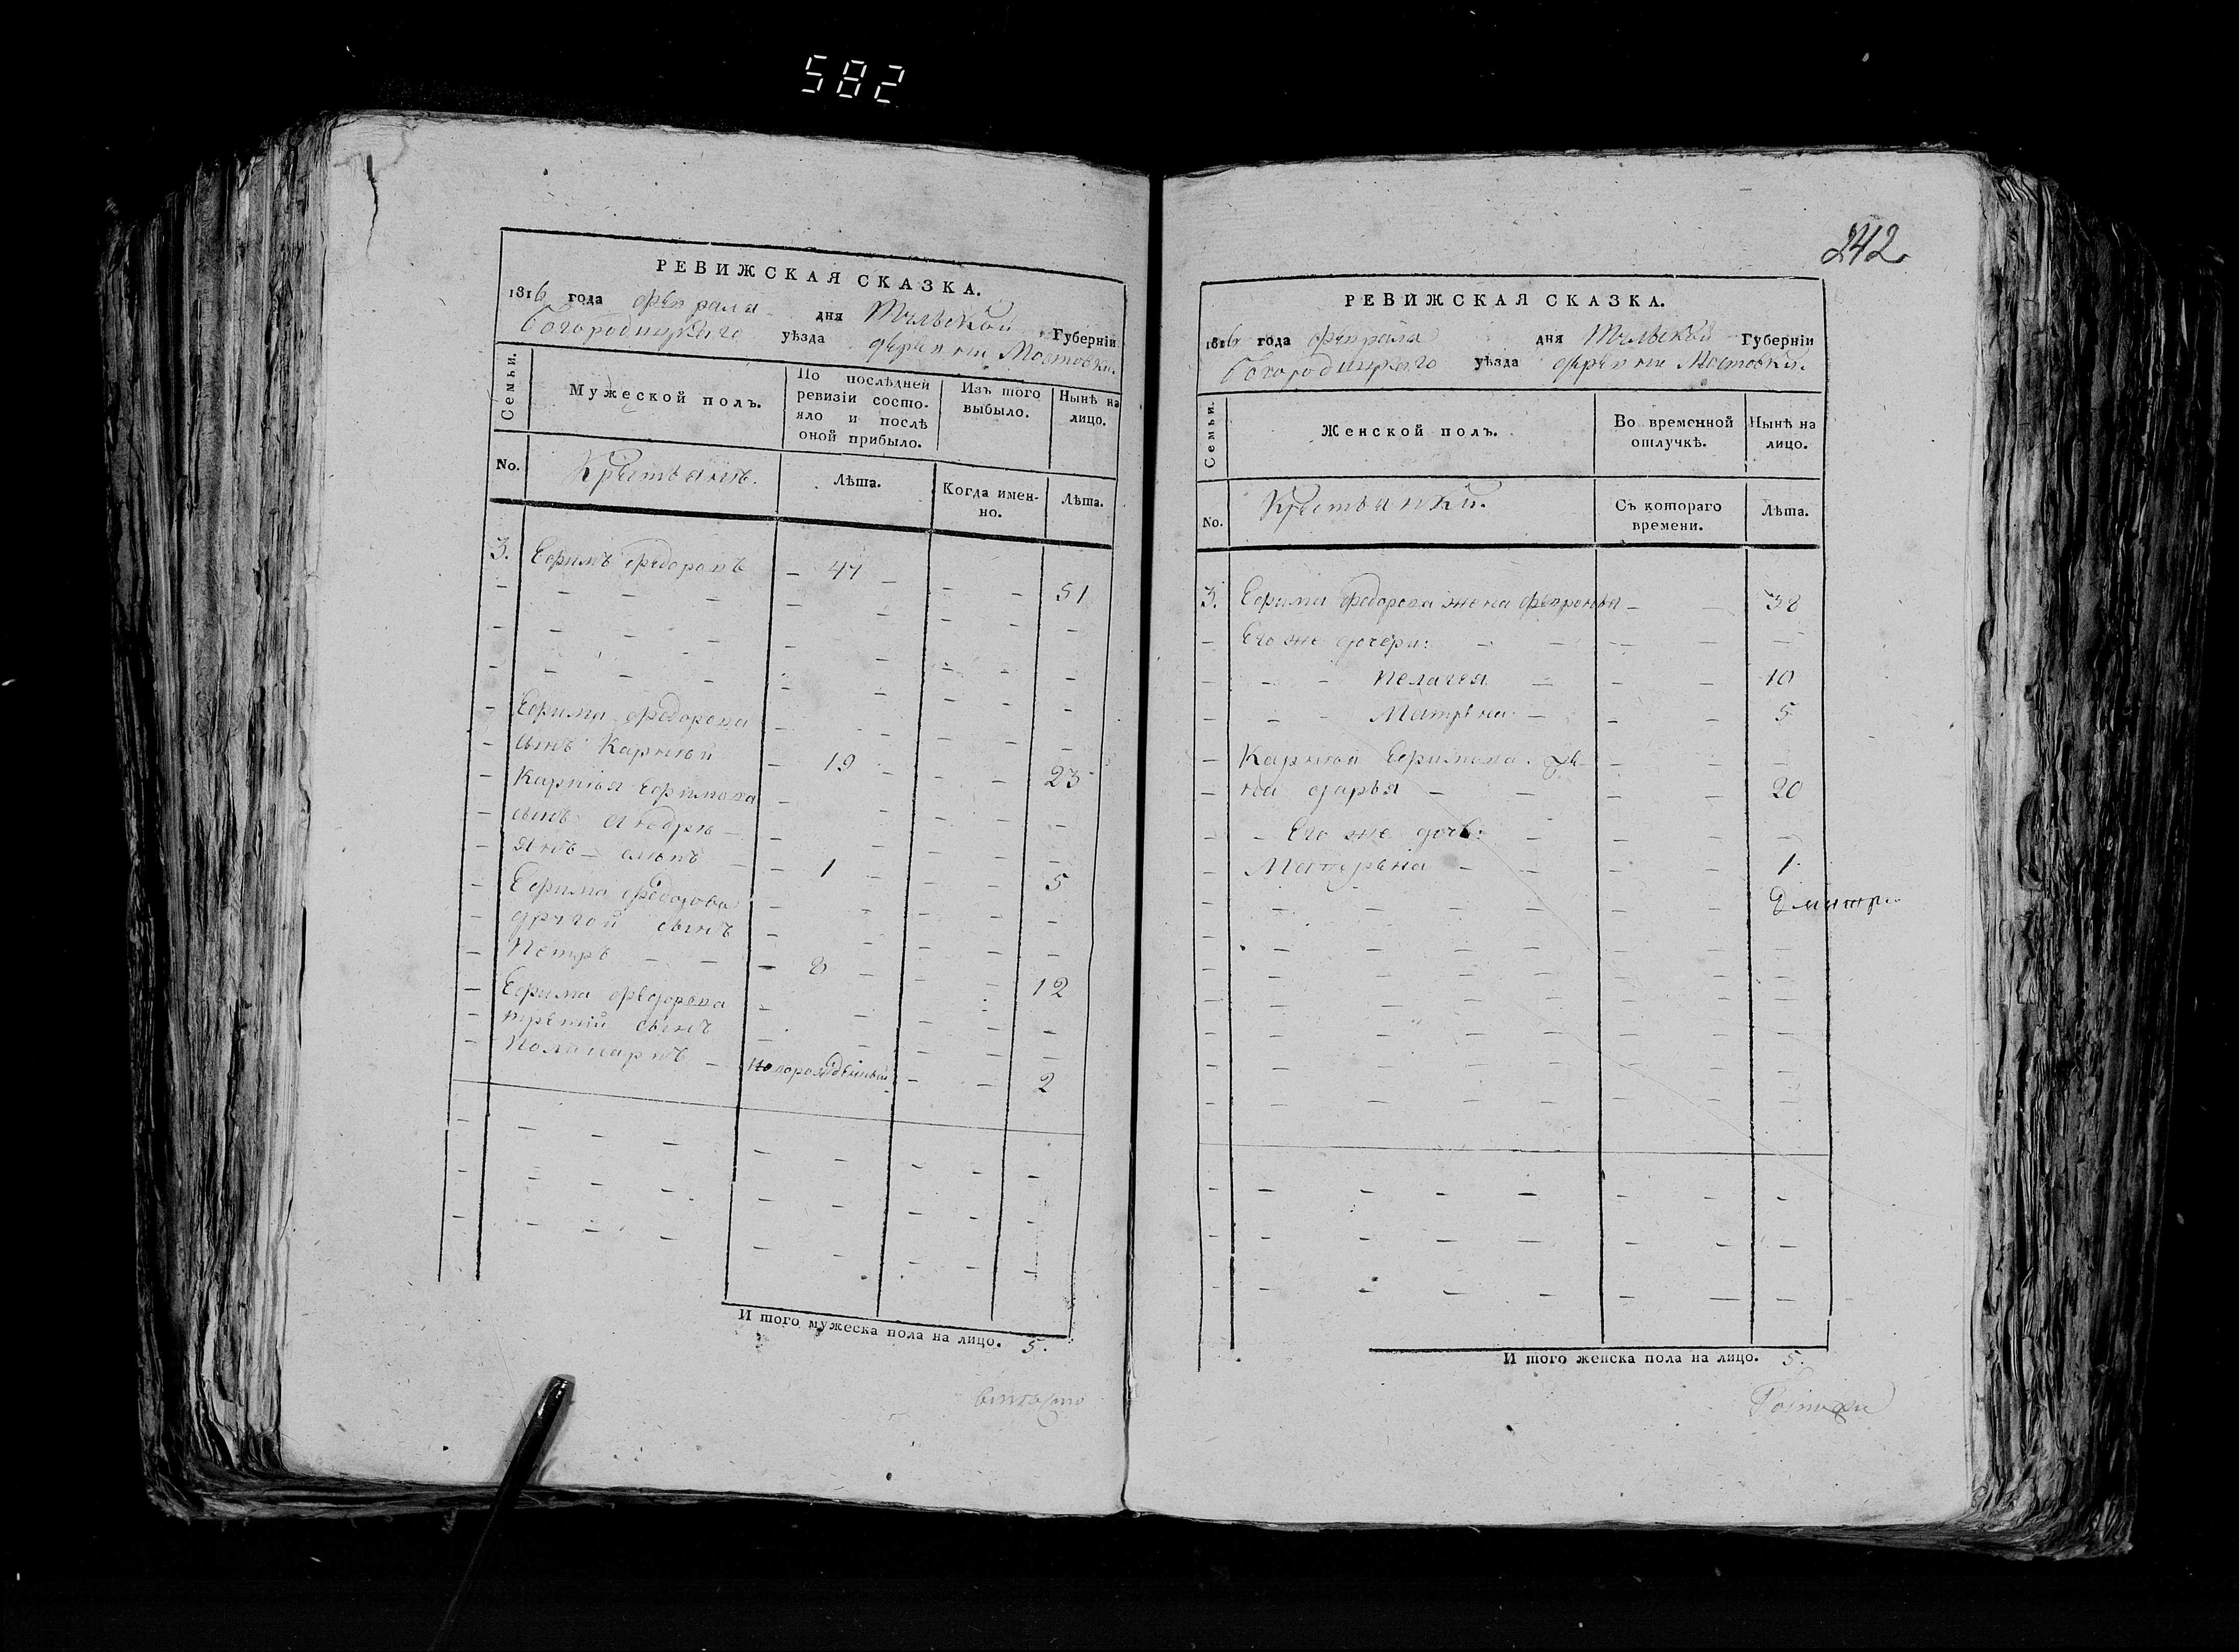 582
РЕВИЖСКАЯ СКАЗКА.
1816 года февраля дня Тульской Губерніи
Богородицкаго уѣзда деревни Мостовки.
Семьи.
Мужеской полъ.
По послѣдней ревизіи состояло и послѣ оной прибыло.
Изъ того выбыло.
Нынѣ на лицо.
No.
Крестьянъ.
Лѣта.
Когда именно.
Лѣта.
3. Ефимъ Федоровъ - 47 - - - 51
Ефима Федорова
сынъ Карней - 19 - - - 23
Карнѣя Ефимова
сынъ Андре
янъ - - 1 - - - 5
Ефима Федорова
другой сынъ
Петръ - - - 8 - - 12
Ефима Федорова
третій сынъ
Поликарпъ - новорожденный - - 2
И того мужеска пола на лицо. 5.
242
РЕВИЖСКАЯ СКАЗКА.
1816 года февраля дня Тульской Губерніи
Богородицкаго уѣзда деревни Мостовки.
Семьи.
Женской полъ.
Во временной отлучкѣ.
Нынѣ на лицо.
No.
Крестьянки.
Съ котораго времени.
Лѣта.
3. Ефима Федорова жена Февронья - - 38
Его же дочери:
Пелагея - - - 10
Матрена - - - 5
Карнѣя Ефимова. же
на Дарья - - - 20
Его же дочь:
Матрена - - - 1.
Дмитри
И того женска пола на лицо. 5.